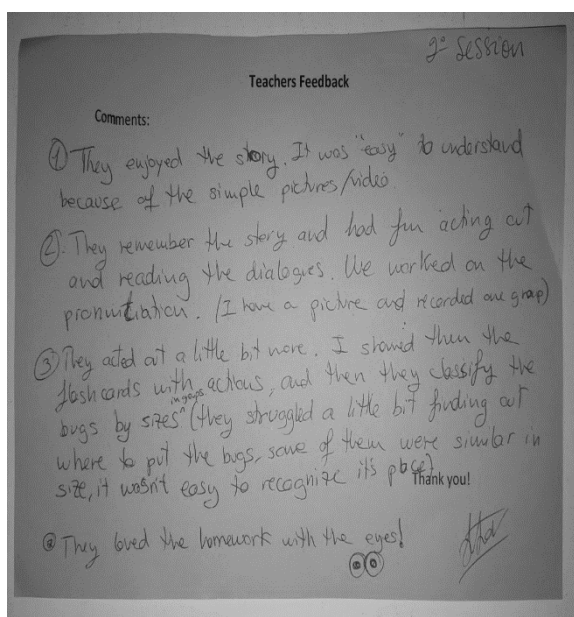 2º Session
Teachers Feedback
Comments:
① They enjoyed the story. It was "easy" to understand
because of the simple pictures/video.
②. They remember the story and had fun acting out
and reading the dialogues. We worked on the
pronuntiation. (I have a picture and recorded one group)
③ They acted out a little bit more. I showed them the
flashcards with actions, and then they classify the
in gaps
bugs by sizes ^ (they struggled a little bit finding out
where to put the bugs, some of them were similar in
size, it wasn't easy to recognize it's place)
Thank you!
They loved the homework with the eyes!